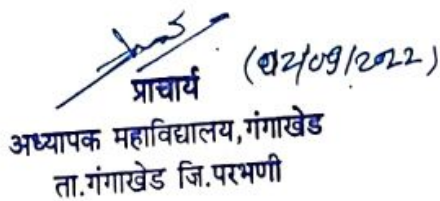 प्राचार्य (02/09/2022)
अध्यापक महाविद्यालय,गंगाखेड
ता.गंगाखेड जि.परभणी